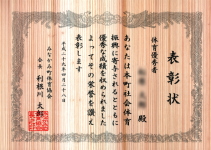 表彰状
体育優秀者
殿
あなたは本町社会体育
振興に寄与されるとともに
優秀な成績を収められました
よってその栄誉を讃え
表彰します
平成二十九年四月二十八日
みなかみ町体育協会
会長 利根川太郎